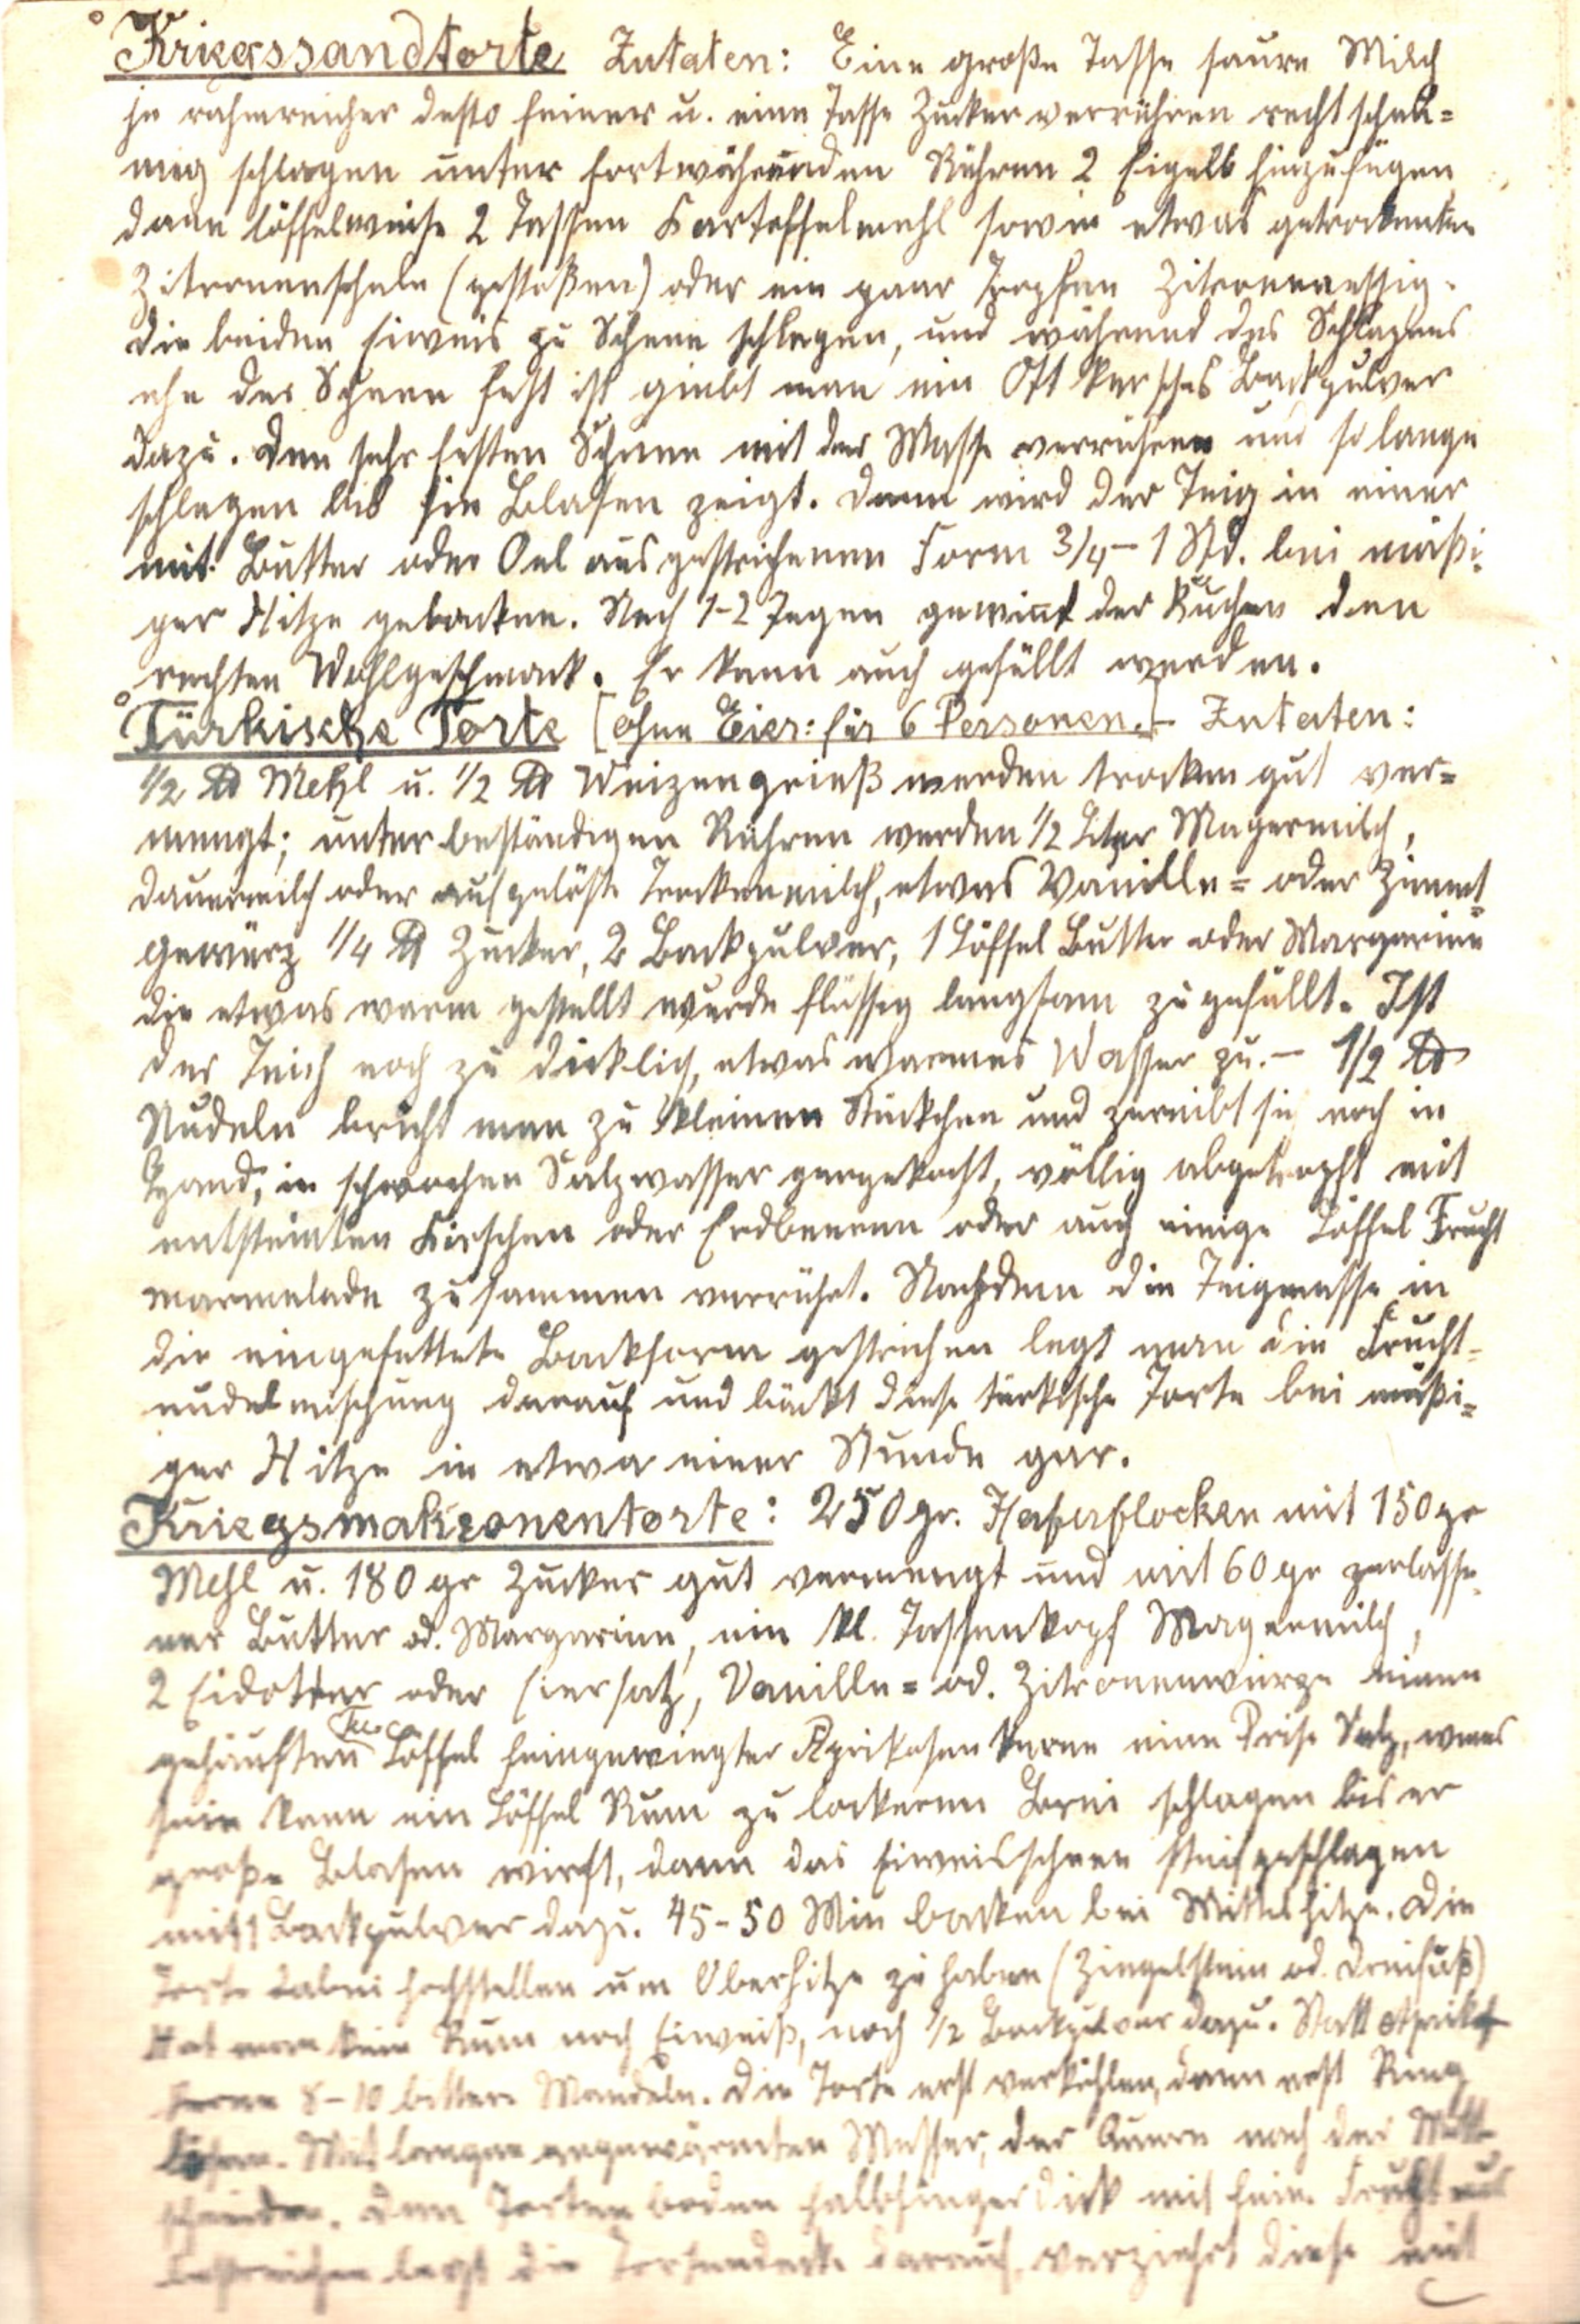 Kriegssandtorte Zutaten: Eine große Tasse saure Milch
je rahmreicher desto feiner u. eine Tasse Zucker verrühren recht schau=
mig schlagen unter fortwährenden Rühren 2 Eigelb hinzufügen
dann löffelweise 2 Tassen Kartoffelmehl sowie etwas getrockneten
Zitronenschale (gestoßen) oder ein paar Tropfen Zitronenessig.
Die beiden Eiweis zu Schnee schlagen, und während des Schlagens
ehe der Schnee fest ist giebt man ein Ottkersches Backpulver
dazu. Den sehr festen Schnee mit der Masse verrühren und so lange
schlagen bis sie Blasen zeigt. Dann wird der Teig in einer
mit Butter oder Oel ausgestrichenen Form 3/4 – 1 Std. bei mäßi=
ger Hitze gebacken. Nach 1-2 Tagen gewinnt der Kuchen den
rechten Wohlgeschmack. Er kann auch gefüllt werden.
Türkische Torte [ohne Eier: für 6 Personen.] – Zutaten:
1/2 ℔ Mehl u. 1/2 ℔ Weizengrieß werden trocken gut ver=
mengt; unter beständigen Rühren werden 1/2 Liter Magermilch,
Dauermilch oder aufgelöste Trockenmilch, etwas Vanille= oder Zimmt=
gewürz 1/4 ℔ Zucker, 2 Backpulver, 1 Löffel Butter oder Margarine
die etwas warm gestellt wurde flüssig langsam zugefüllt. Ist
der Teich noch zu dicklich, etwas warmes Wasser zu. – 1/2 ℔
Nudeln bricht man zu kleinen Stückchen und zereibt sie noch in
Hand, in schwachen Salzwasser gargekocht, völlig abgetropft mit
entsteinten Kirschen oder Erdbeeren oder auch einige Löffel Frucht
marmelade zusammen verrührt. Nachdem die Teigmasse in
die eingefettete Backform gestrichen legt man die Frucht=
nudelmischung darauf und bäckt diese türkische Torte bei mäßi=
ger Hitze in etwa einer Stunde gar.
Kriegsmakronentorte: 250 gr. Haferflocken mit 150 gr
Mehl u. 180 gr Zucker gut vermengt und mit 60 gr zerlasse=
ner Butter od. Margarine, ein kl. Tassenkopf Magermilch,
2 Eidotter oder Eiersatz, Vanille= od. Zitronenwürze einen
gehäuften Löffel feingewiegter Aprikosenkerne eine Prise Salz, wenns
sein kann ein Löffel Rum zu lockeren Brei schlagen bis er
große Blasen wirft, dann das Eiweisschnee steif geschlagen
mit 1 Backpulver dazu. 45-50 Min backen bei Mittelhitze. Die
Torte dabei hochstellen um Oberhitze zu haben (Ziegelstein od. Dreifuß)
Hat man kein Rum noch Eiweiß, noch 1/2 Backpulver dazu. Statt Aprikos
kerne 8-10 bittere Mandeln. Die Torte erst verkühlen, dann erst Ring
lösen. Mit langen angewärmten Messer, der Quere nach der Mitte
schneiden. Den Tortenboden halbfingerdick mit fein. Frucht
bestreichen legt die Tortendecke darauf, verziehrt diese mit